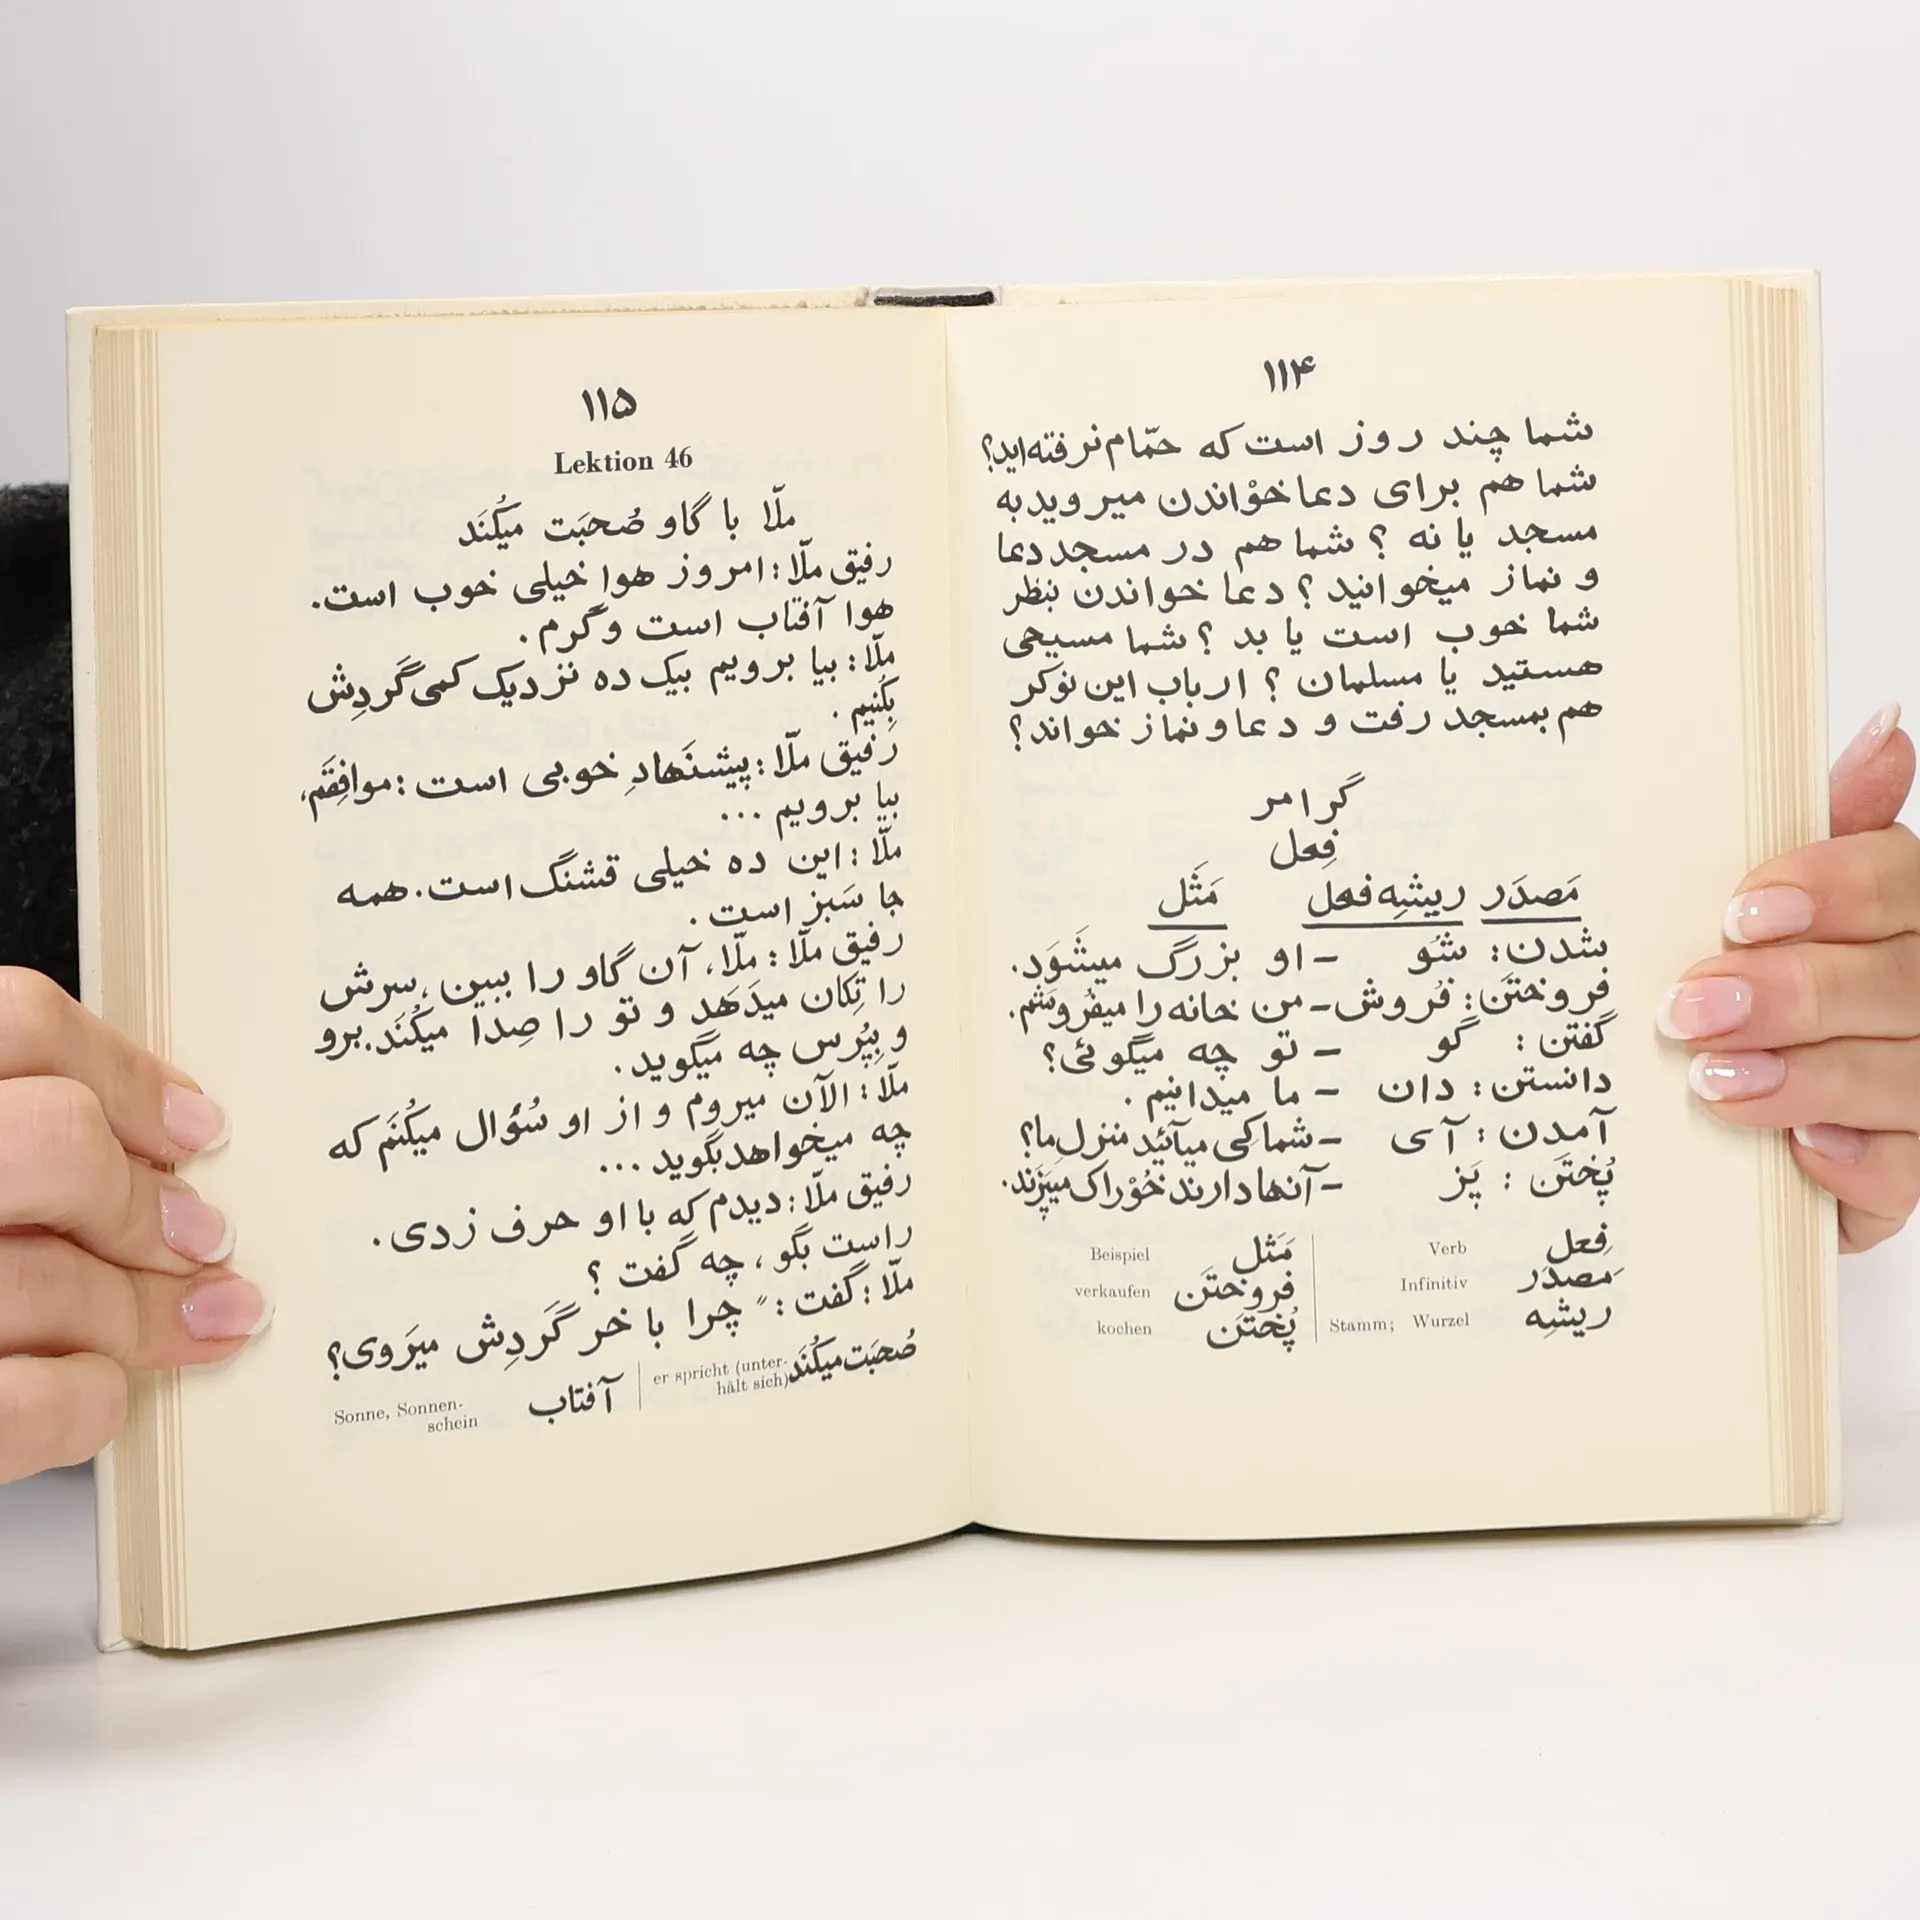 ۱۱۴
شما چند روز است که حمّام نرفته‌اید؟
شما هم برای دعا خوْاندن میروید به
مسجد یا نه ؟ شما هم در مسجد دعا
و نماز میخوانید ؟ دعا خواندن بنظر
شما خوب است یا بد ؟ شما مسیحی
هستید یا مسلمان ؟ ارباب این نوکر
هم بمسجد رفت و دعا و نماز خواند؟
گرامر
فِعل
مَصدَر ریشِه فعل مَثَل
شدن: شَو – او بزرگ میشَوَد.
فروختَن: فُروش – من خانه را میفُروشَم.
گفتن : گو – تو چه میگوئی؟
دانستن : دان – ما میدانیم .
آمدن : آی – شما کِی میآئید منزلِ ما؟
پُختَن : پَز – آنها دارند خُوْراک میپَزَند.
فِعل Verb
مَصدَر Infinitiv
ریشِه Stamm; Wurzel
مَثَل Beispiel
فروختَن verkaufen
پُختَن kochen
۱۱۵
Lektion 46
ملّا با گاو صُحبَت میکُنَد
رفیق ملّا : امروز هوا خیلی خوب است.
هوا آفتاب است و گرم .
ملّا : بیا برویم بیک ده نزدیک کمی گَردِش
بِکُنیم .
رفیق ملّا : پیشنَهادِ خوبی است : موافِقَم،
بیا برویم ...
ملّا : این ده خیلی قشنگ است. همه
جا سَبز است .
رفیق ملّا : ملّا، آن گاو را ببین ، سرش
را تِکان میدَهَد و تو را صِدا میکُنَد. برو
و بِپُرس چه میگوید.
ملّا : الآن میروم و از او سُؤال میکُنَم که
چه میخواهد بگوید ...
رفیق ملّا : دیدم که با او حرف زدی .
راست بگو ، چه گفت ؟
ملّا : گفت : " چرا با خر گَردِش میرَوی؟
صُحبَت میکُنَد er spricht (unter-
hält sich)
آفتاب Sonne, Sonnen-
schein